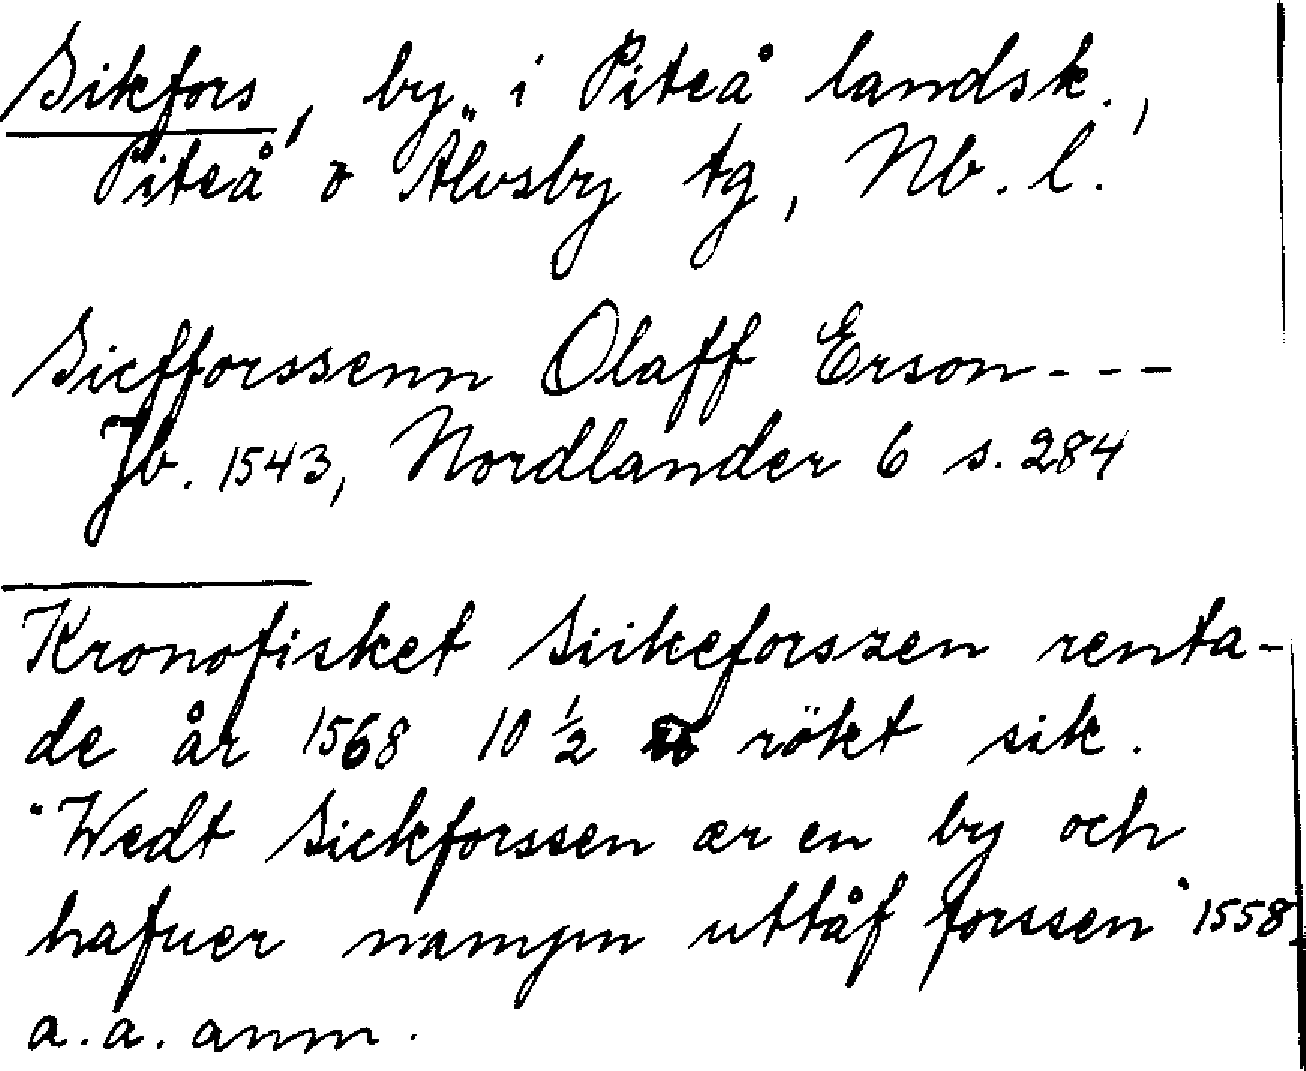 Sikfors, by i Piteå landsk.,
Piteå o Älvsby tg, Nb. l.
Sicfforssenn Olaff Erson - - -
Jb. 1543, Nordlander 6 s. 284
Kronofisket Siikeforszen renta-
de år 1568 10 ½ rökt sik.
"Wedt Sickforssen ær en by och
hafuer nampn uttåf forssen" 1558.
a. a. anm.